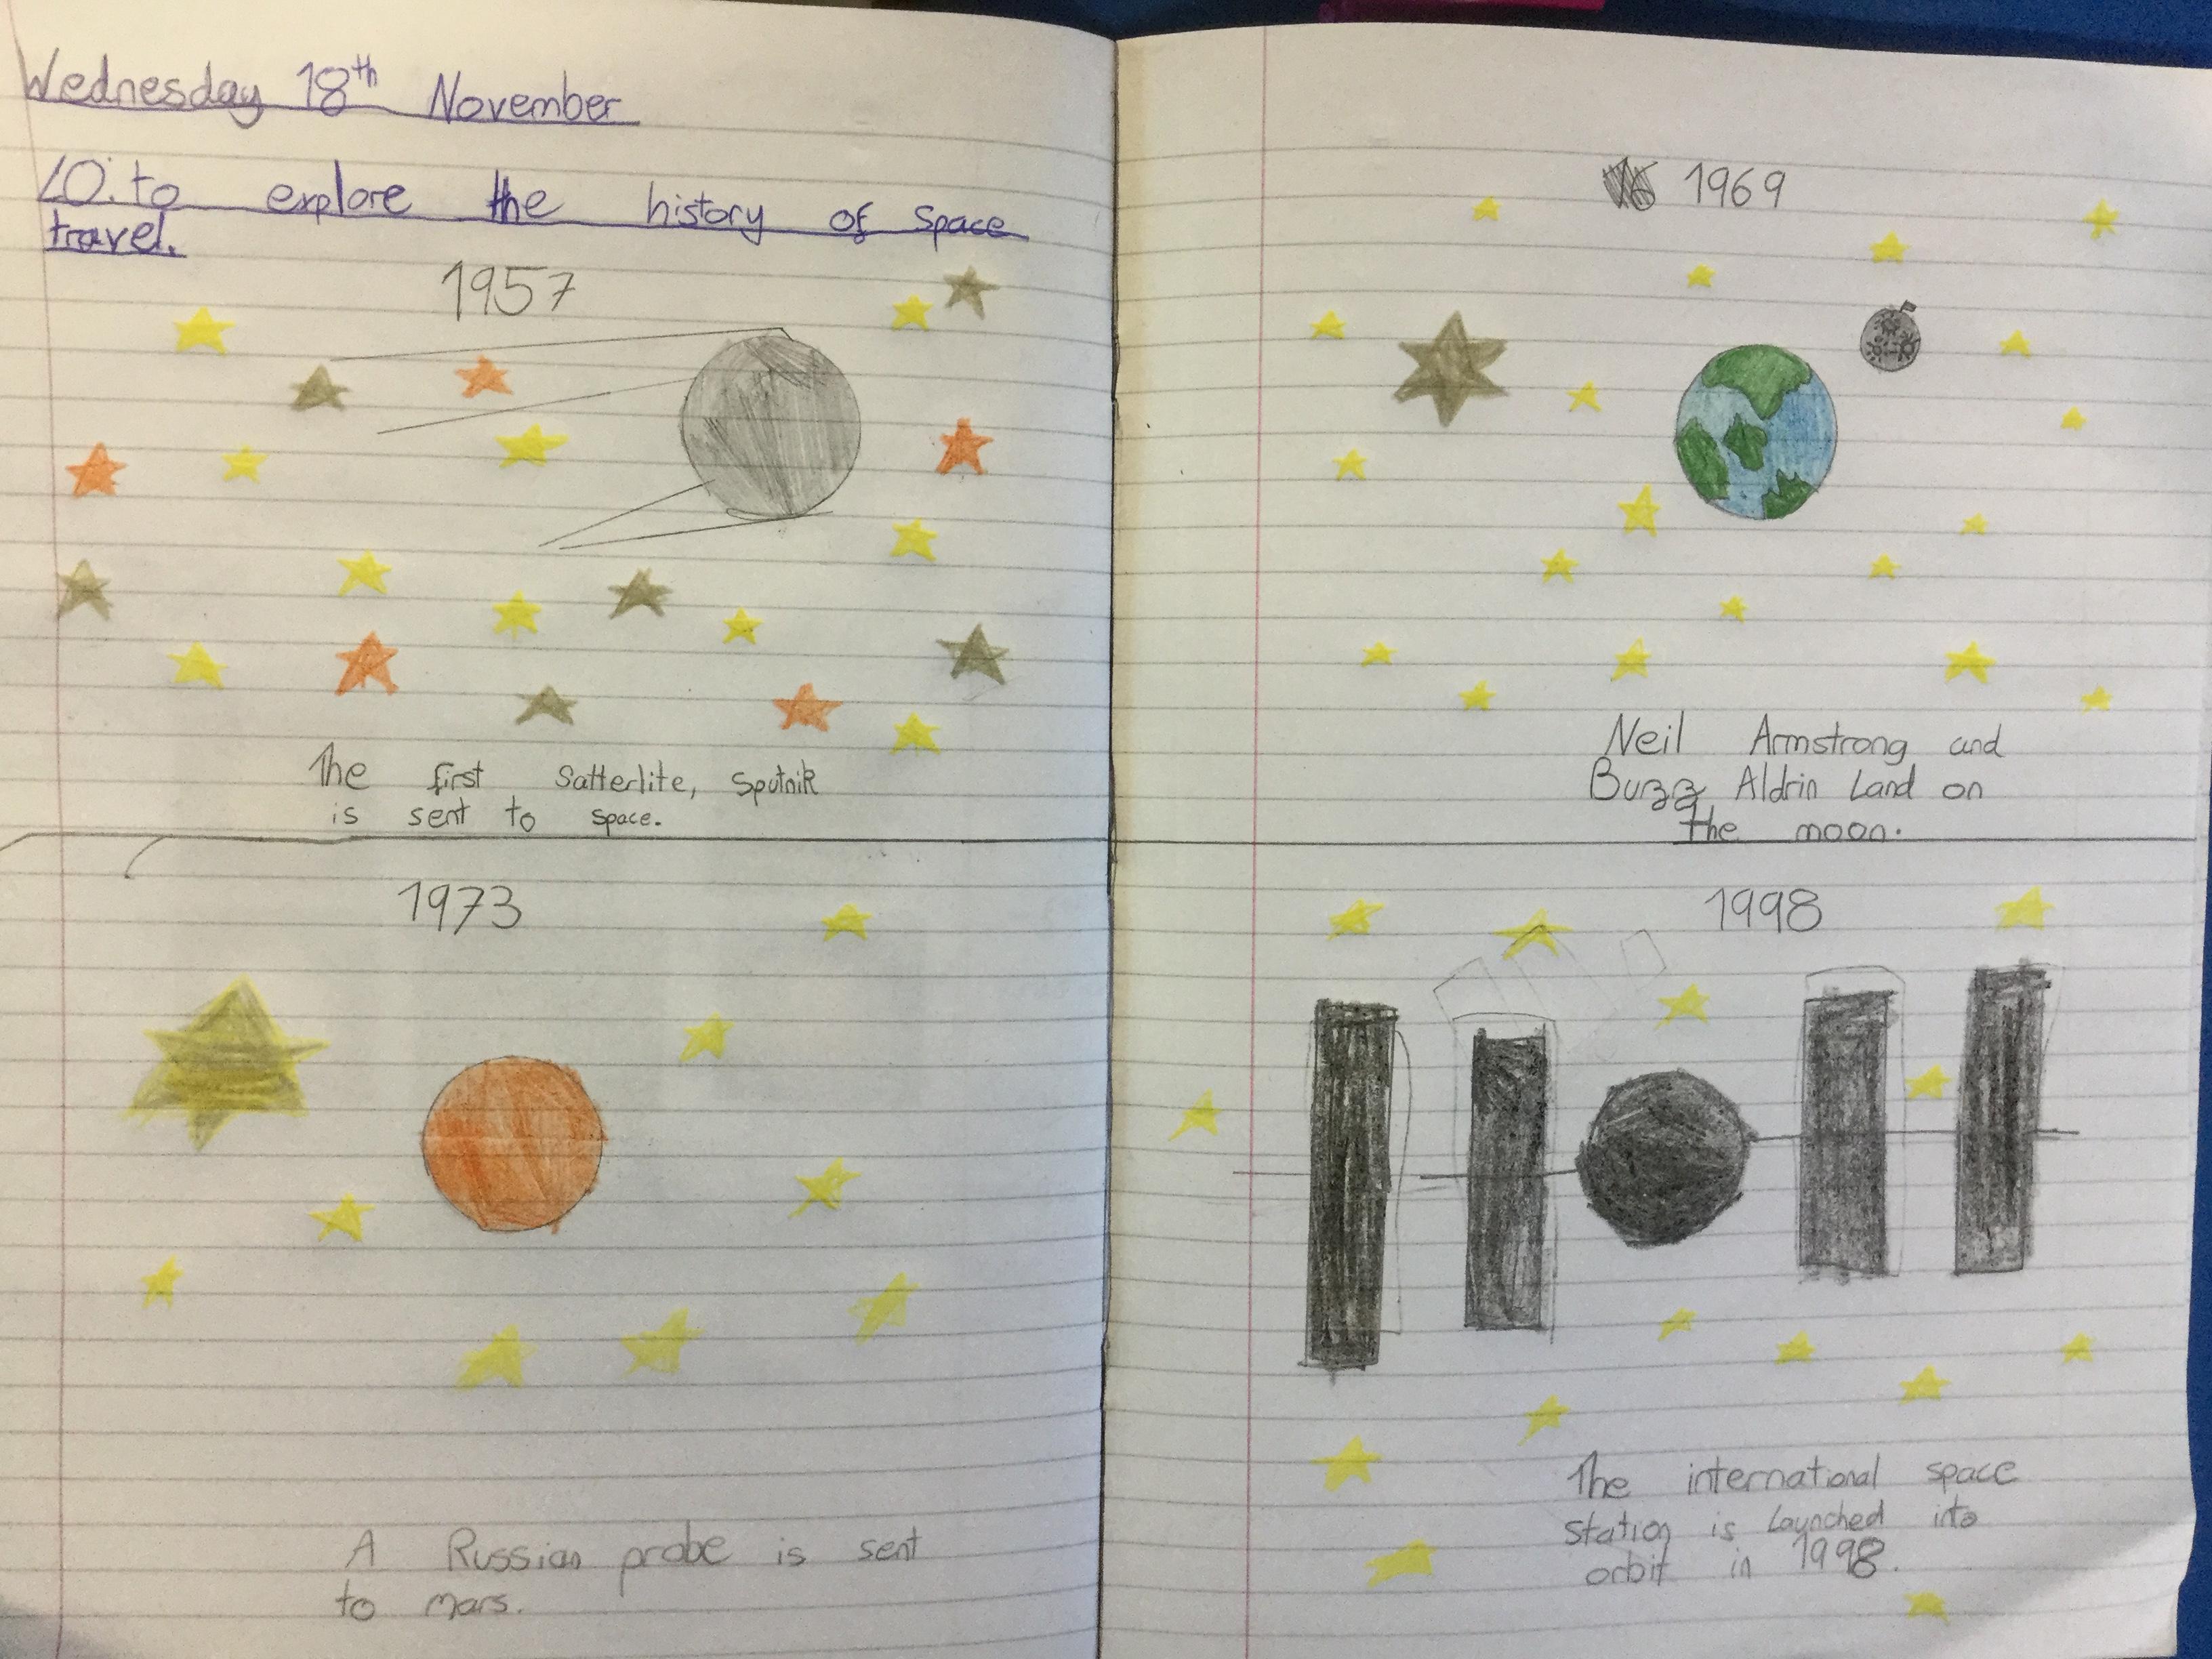 Wednesday 18th November
LO: to explore the history of space
travel.
1957
The first Satterlite, Sputnik
is sent to space.
1973
A Russian probe is sent
to mars.
1969
Neil Armstrong and
Buzz Aldrin Land on
the moon.
1998
The international space
station is launched into
orbit in 1998.